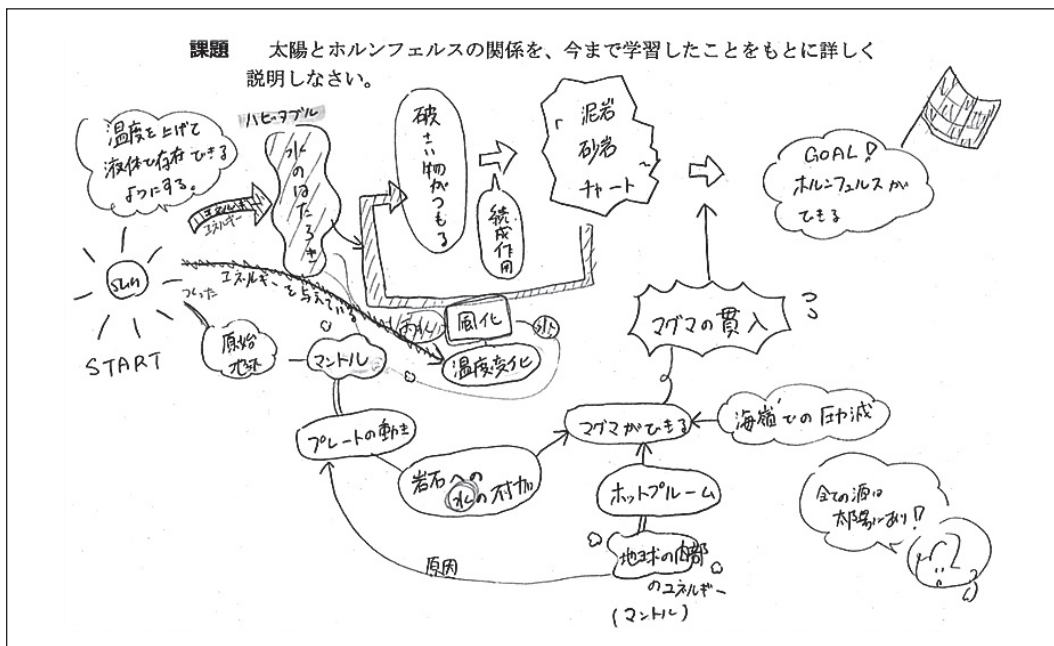 課題　太陽とホルンフェルスの関係を、今まで学習したことをもとに詳しく
説明しなさい。
温度を上げて
液体で存在できる
ようにする。
ハビタブル
水のはたらき
エネルギー
破さい物がつもる
続成作用
泥岩
砂岩
チャート
GOAL!
ホルンフェルスが
できる
sun
START
エネルギーを与えている
つくった
原始
地球
マントル
雨水
風化
温度変化
マグマの貫入
プレートの動き
岩石への
水の付加
マグマができる
海嶺での圧力減
ホットプルーム
地球の内部
のエネルギー
(マントル)
原因
全ての源は
太陽にあり!